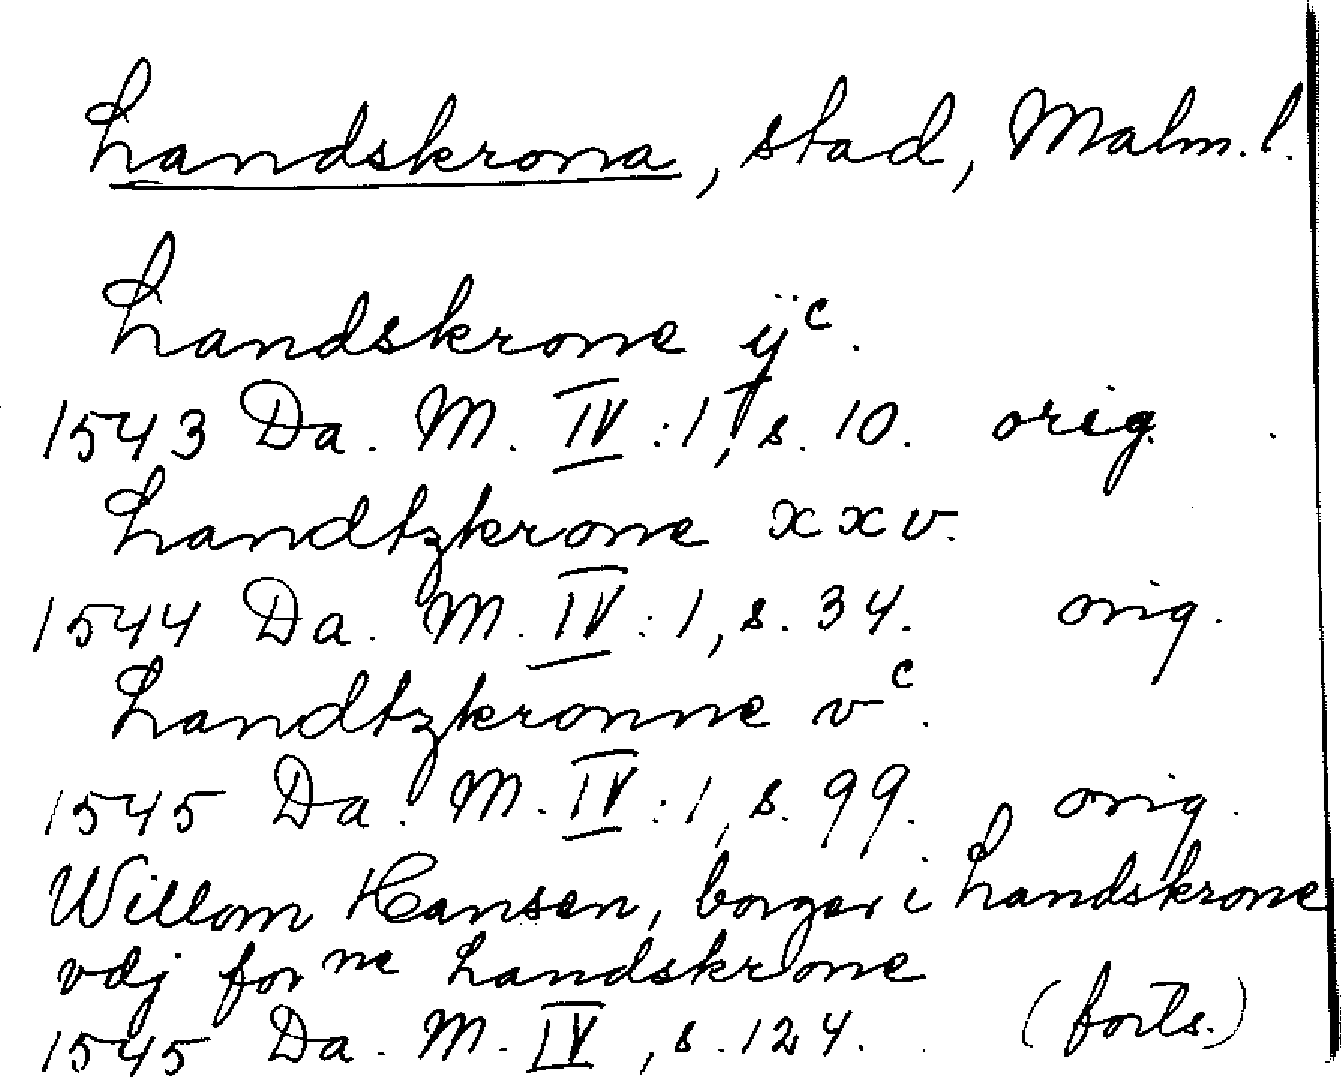 Landskrona, stad, Malm. l.
Landskrone ijᶜ.
1543 Da. M. IV:1, s. 10. orig.
Landtzkrone xxv.
1544 Da. M. IV:1, s. 34. orig.
Landtzkronne vᶜ.
1545 Da. M. IV:1, s. 99. orig.
Willom Hansen, borger i Landskrone
vdj forⁿᵉ Landskrone
1545 Da. M. IV, s. 124. (forts.)